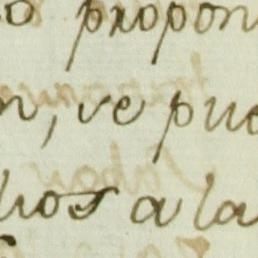 o propon
n, ve pue
hos a la